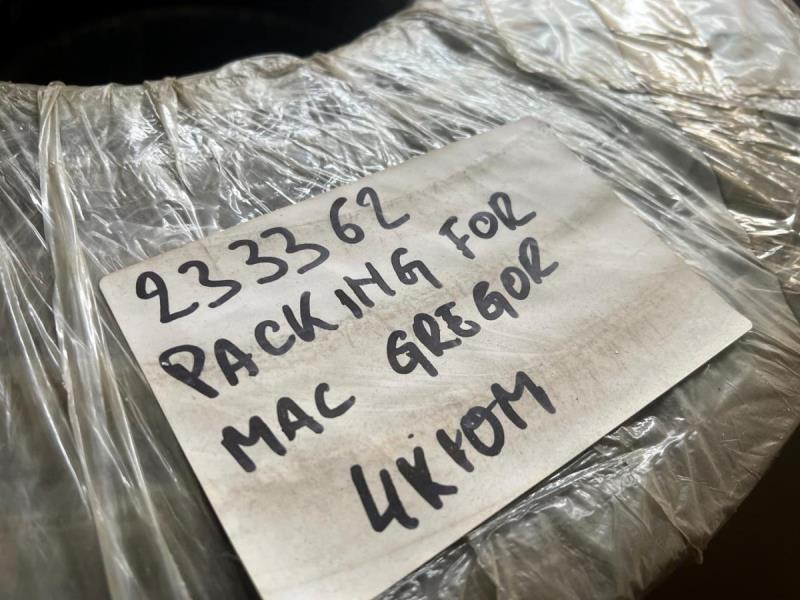 233362
PACKING FOR
MAC GREGOR
4x10M